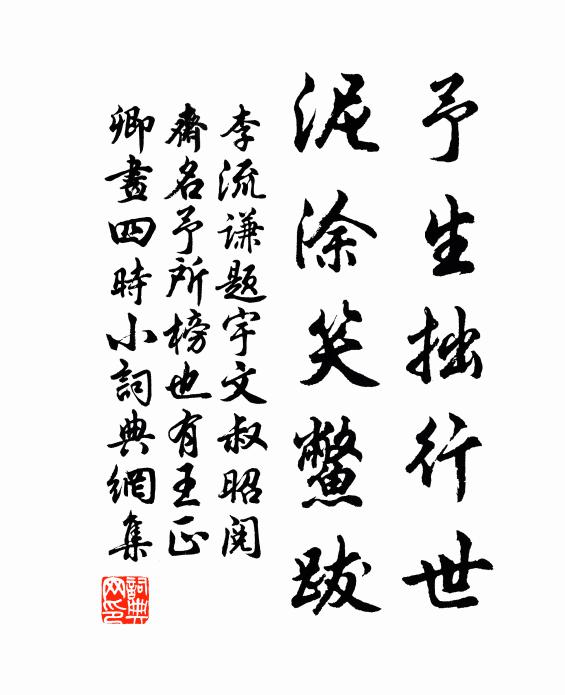 予生拙行世
泥涂笑鳖跋
李流谦题宇文叔昭阅
斋名予所榜也有王正
卿画四时小词典网集
词典
网印